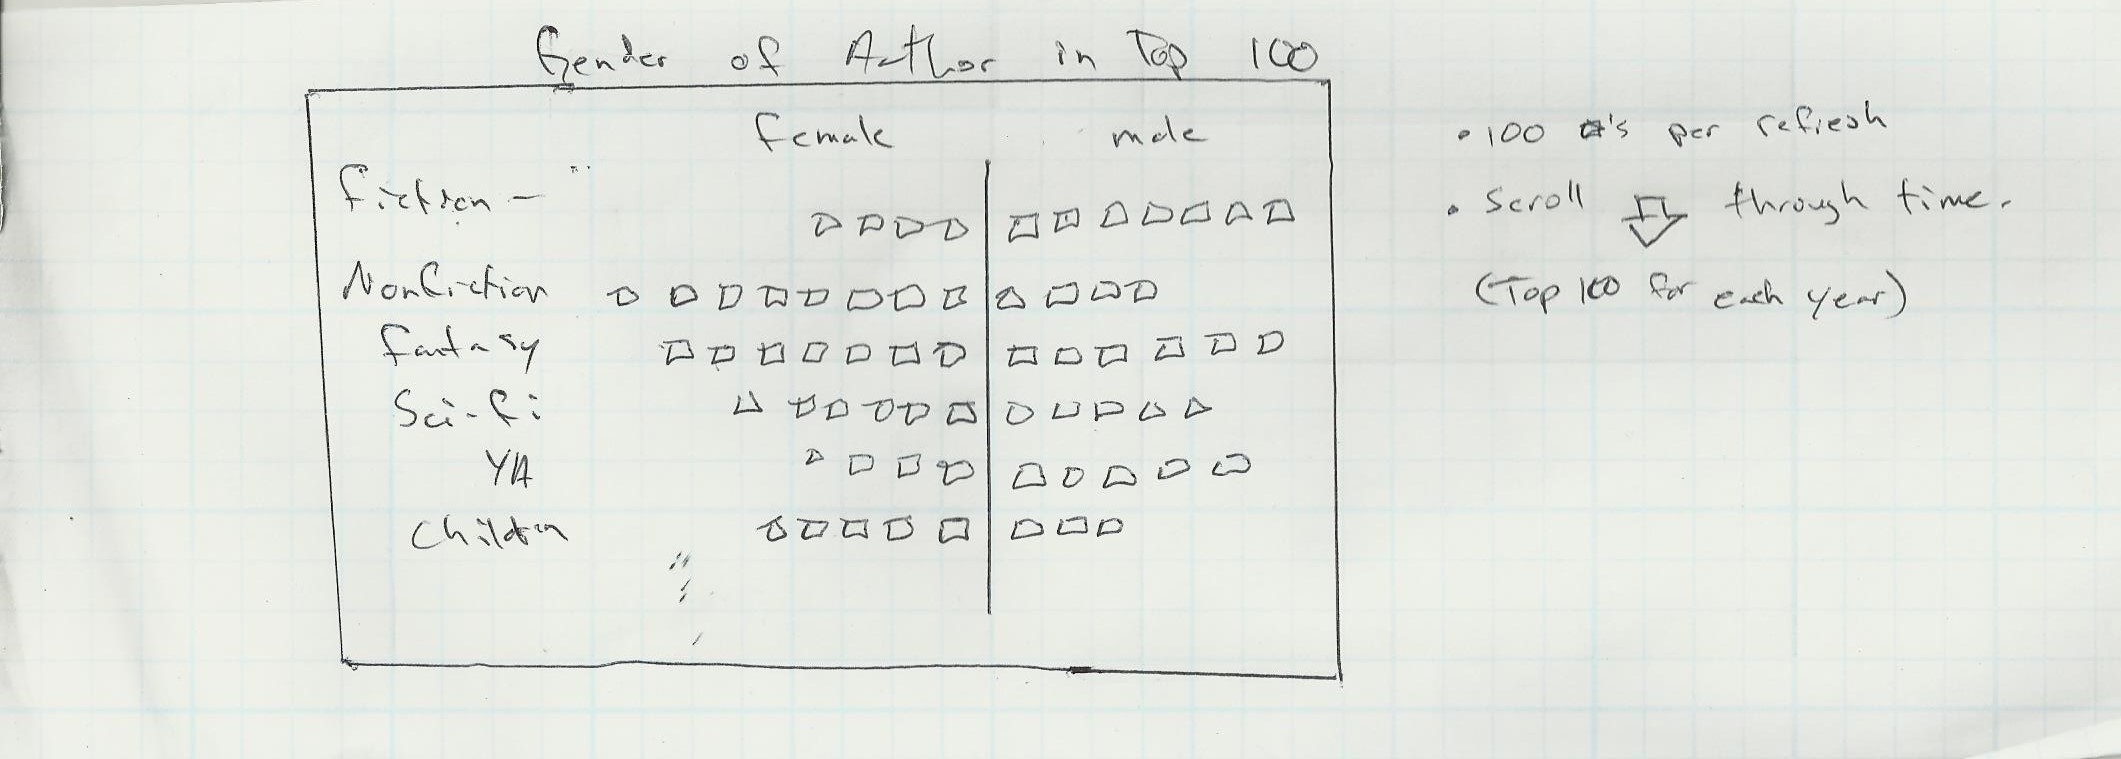 Gender of Author in Top 100
female male
fiction -
Nonfiction
fantasy
Sci-fi
YA
Children
• 100 □'s per refresh
• Scroll through time.
(Top 100 for each year)